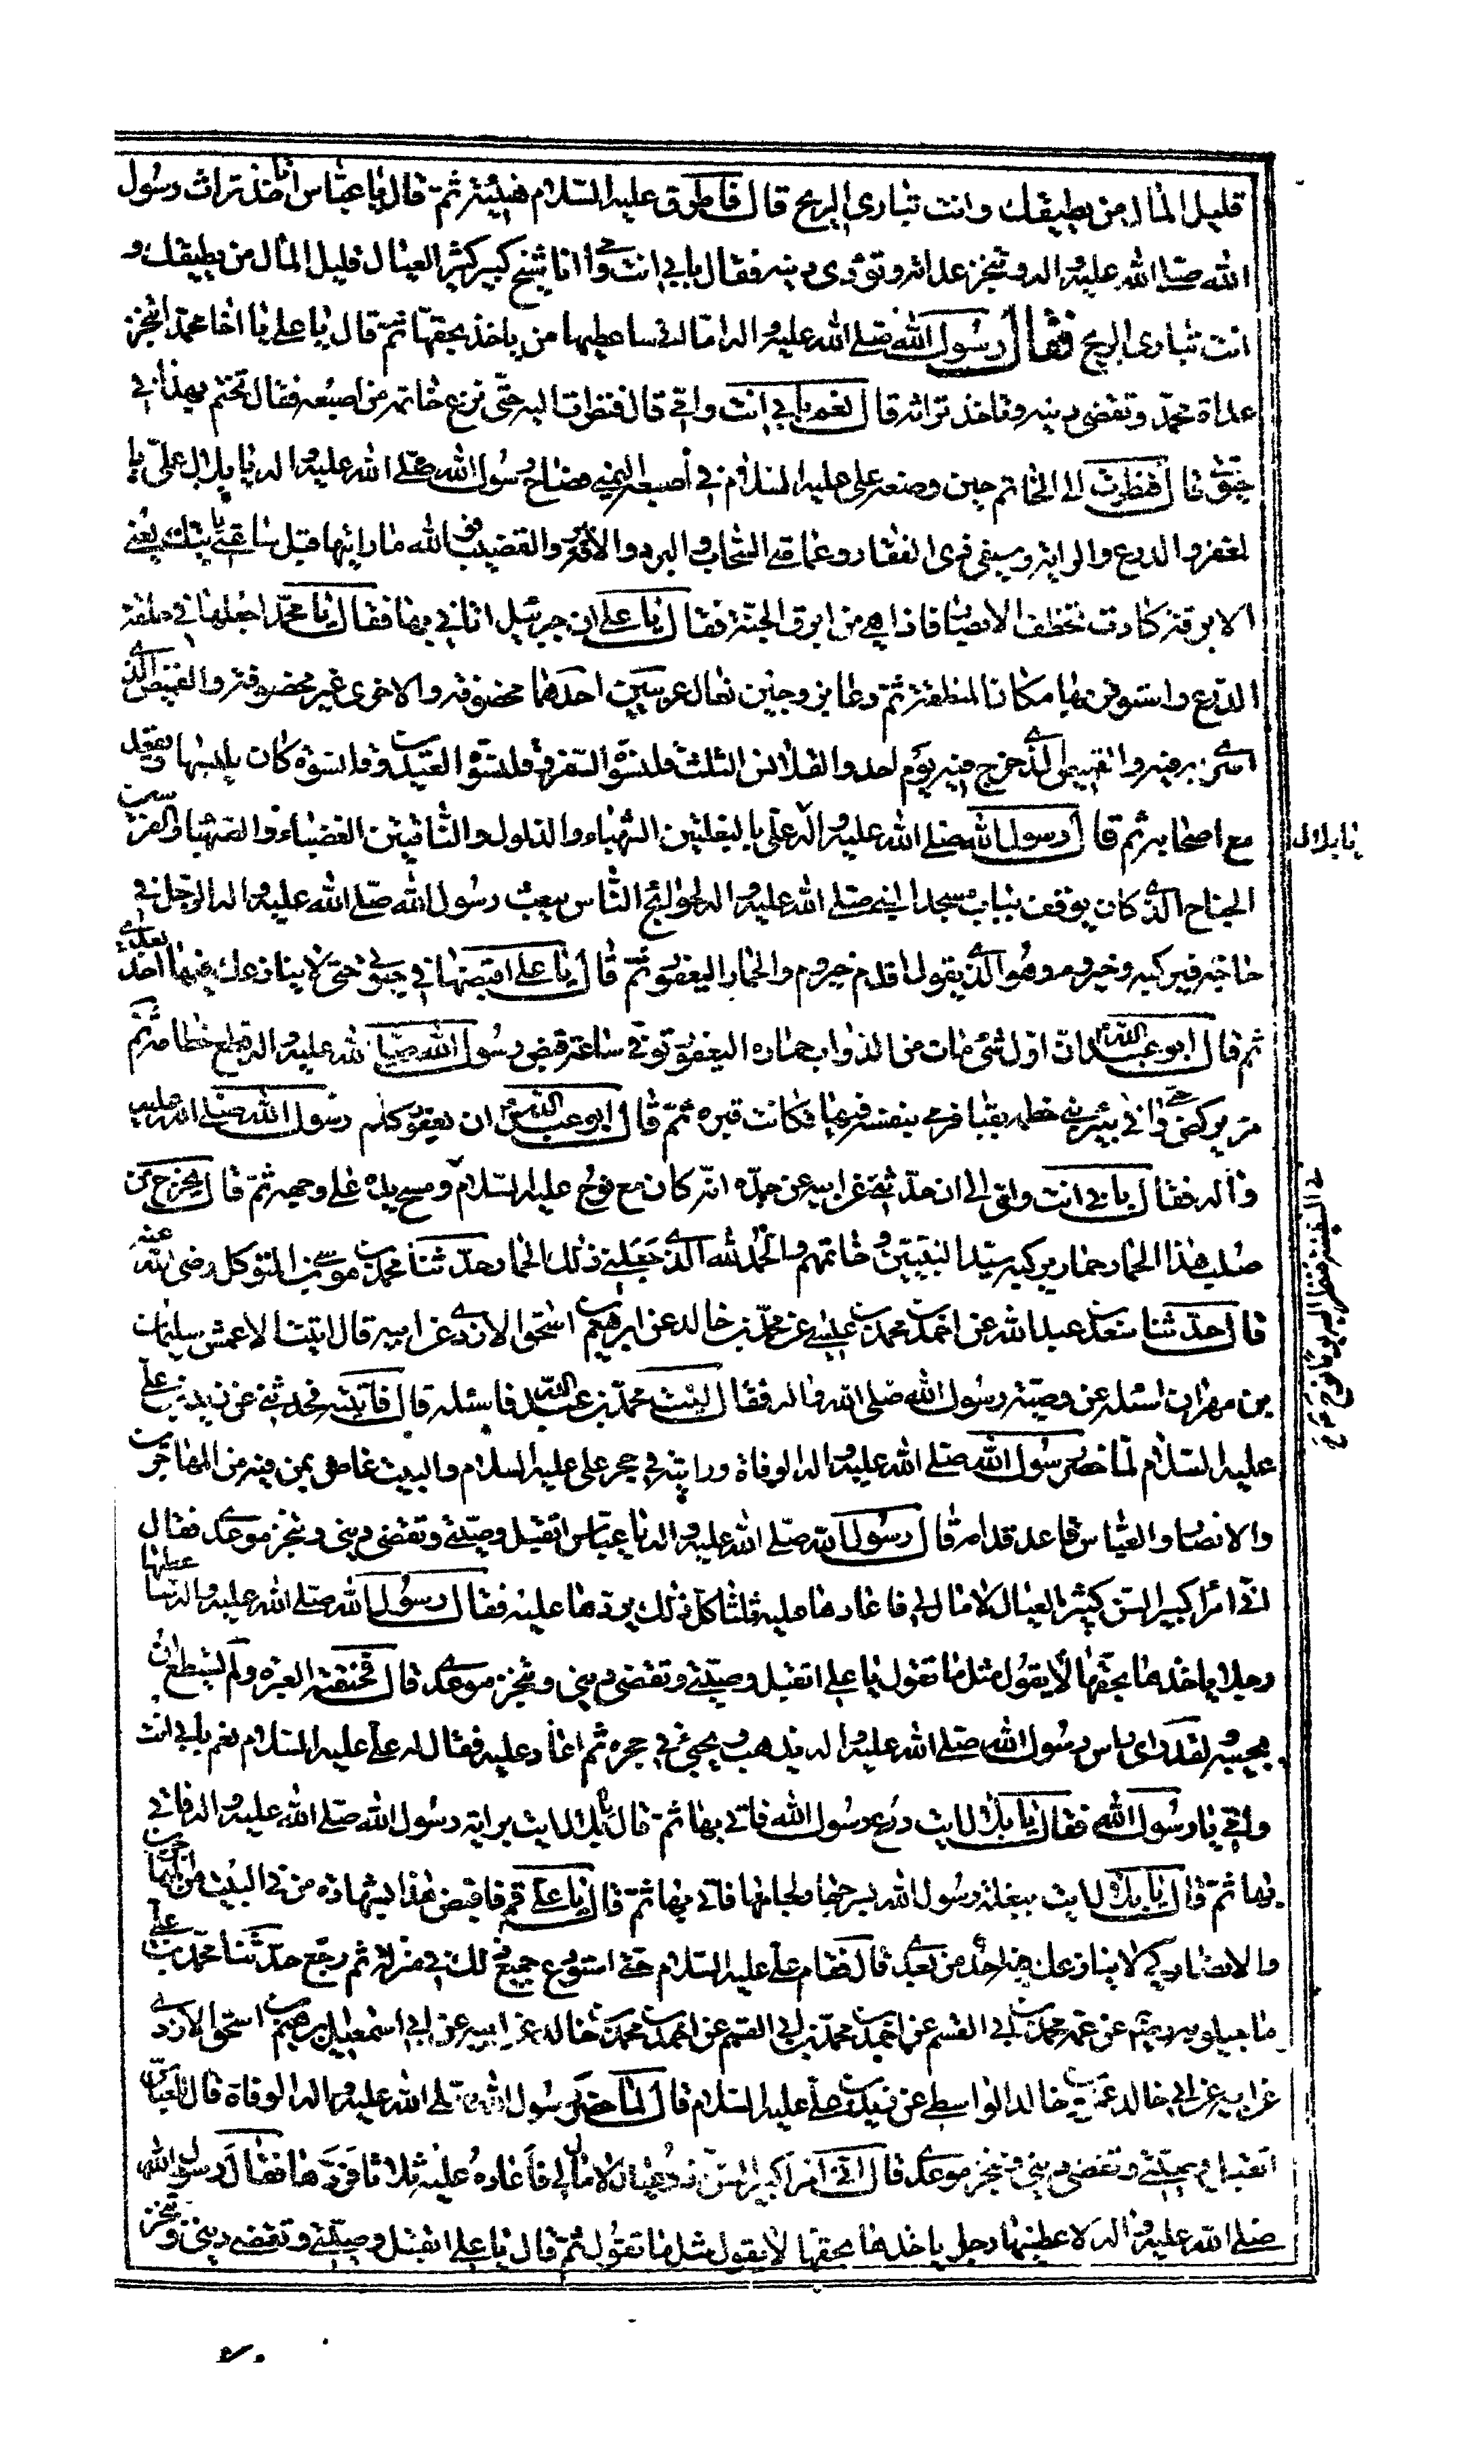 قليل المال من يطيقك وانت تباري الريح قال فاطرق عليه السلام هنيئة ثم قال يا عباس اتاخذ تراث رسول
الله صلى الله عليه واله وتنجز عداته وتؤدى دينه فقال بابي انت وامي انا شيخ كبير كثير العيال قليل المال من يطيقك و
انت تبارى الريح فقال رسول الله صلى الله عليه واله اما انى ساعطيها من ياخذ بحقها ثم قال يا علي يا اخا محمد اتنجز
عداة محمد وتقضى دينه وتاخذ تراثه قال نعم بابي انت وامي قال فنظرت اليه حتى نزع خاتمه من اصبعه فقال تختم بهذا في
حيوتي قال فنظرت الى الخاتم حين وضعه علي عليه السلام في اصبعه اليمنى فصاح رسول الله صلى الله عليه واله يا بلال علي با
لمغفر والدرع والراية وسيفي ذى الفقار وعمامتي السحاب والبرد والابرقة والقضيب فو الله ما رايتها قبل ساعتي تيك يعني
الابرقة كادت تخطف الابصار فاذا هي من ابرق الجنة فقال يا علي ان جبرئيل اتاني بها فقال يا محمد اجعلها في حلقة
الدرع واستوفر بها مكان المنطقة ثم دعا بزوجين نعال عربيين احدهما مخصوفة والاخرى غير مخصوفة والقميص الذي
اسرى به فيه والقميص الذي خرج فيه يوم احد والقلانس الثلث قلنسوة السفر وقلنسوة العيدين وقلنسوة كان يلبسها ويقعد
مع اصحابه ثم قال رسول الله صلى الله عليه واله علي بالبغلتين الشهباء والدلدل والناقتين العضباء والصهباء والفرسين
يا بلال
الجناح الذي كان يوقف بباب مسجد النبي صلى الله عليه واله لحوائج الناس يبعث رسول الله صلى الله عليه واله الرجل في
حاجته فيركبه وحيزوم وهو الذي يقول اقدم حيزوم والحمار اليعفور ثم قال يا علي اقبضها في حيوتي حتى لا ينازعك فيها احد بعدي
ثم قال ابو عبد الله ان اول شئ مات من الدواب حماره اليعفور توفى ساعة قبض رسول الله صلى الله عليه واله قطع خطامه ثم
مر يركض حتى اتى بئر بني خطمة بقبا فرمى بنفسه فيها فكانت قبره ثم قال ابو عبد الله ان يعفور كلم رسول الله صلى الله عليه
واله فقال بابي انت وامي ان ابي حدثني عن ابيه عن جده انه كان مع نوح عليه السلام ومسح يده على وجهه ثم قال يخرج من
صلب هذا الحمار حمار يركبه سيد النبيين وخاتمهم والحمد لله الذي جعلني ذلك الحمار حدثنا محمد بن موسى بن المتوكل رضى الله عنه
قال حدثنا سعد بن عبد الله عن احمد بن محمد بن عيسى عن محمد بن خالد عن ابرهيم بن اسحق الازدي عن ابيه قال اتيت الاعمش سليمان
بن مهران اسئله عن وصية رسول الله صلى الله واله فقال ائت محمد بن عبد الله فاسئله قال فاتيته فحدثني عن زيد بن علي
عليه السلام لما حضر رسول الله صلى الله عليه واله الوفاة ورايته في حجر علي عليه السلام والبيت غاص بمن فيه من المهاجرين
والانصار والعباس قاعد قدامه قال رسول الله صلى الله عليه واله يا عباس اتقبل وصيتي وتقضى ديني وتنجز موعدي فقال
اني امرا كبير السن كثير العيال لا مال لي فاعادها عليه ثلثا كل ذلك يردها عليه فقال رسول الله صلى الله عليه واله ساعطيها
رجلا ياخذها بحقها لا يقول مثل ما تقول يا علي اتقبل وصيتي وتقضى ديني وتنجز موعدي قال فخنقته العبرة ولم يستطع ان
يجيبه لقد راى راس رسول الله صلى الله عليه واله يذهب ويجيئ في حجره ثم اعاد عليه فقال له علي عليه السلام نعم بابي انت
وامي يا رسول الله فقال يا بلال ايت درع رسول الله فاتى بها ثم قال يا بلال ايت براية رسول الله صلى الله عليه واله فاتى
بها ثم قال يا بلال ايت ببغلة رسول الله بسرجها ولجامها فاتى بها ثم قال يا علي قم فاقبض هذا بشهادة من في البيت من المهاجرين
والانصار كي لا ينازعك فيه احد من بعدي قال فقام علي عليه السلام حتى استودع جميع ذلك في منزله ثم رجع حدثنا محمد بن علي
ماجيلويه عن عمه محمد بن ابي القسم عن احمد بن محمد بن خالد عن ابيه عن ابي اسمعيل ابرهيم بن اسحق الازدي
عن ابيه عن ابي خالد عمرو بن خالد الواسطي عن زيد بن علي عليه السلام قال لما حضر رسول الله صلى الله عليه واله الوفاة قال للعباس
اتقبل وصيتي وتقضى ديني وتنجز موعدي قال اني امرا كبير السن ذو عيال لا مال لي فاعاده عليه ثلاثا فردها فقال رسول الله
صلى الله عليه واله لاعطينها رجلا ياخذها بحقها لا يقول مثل ما تقول ثم قال يا علي اتقبل وصيتي وتقضى ديني وتنجز